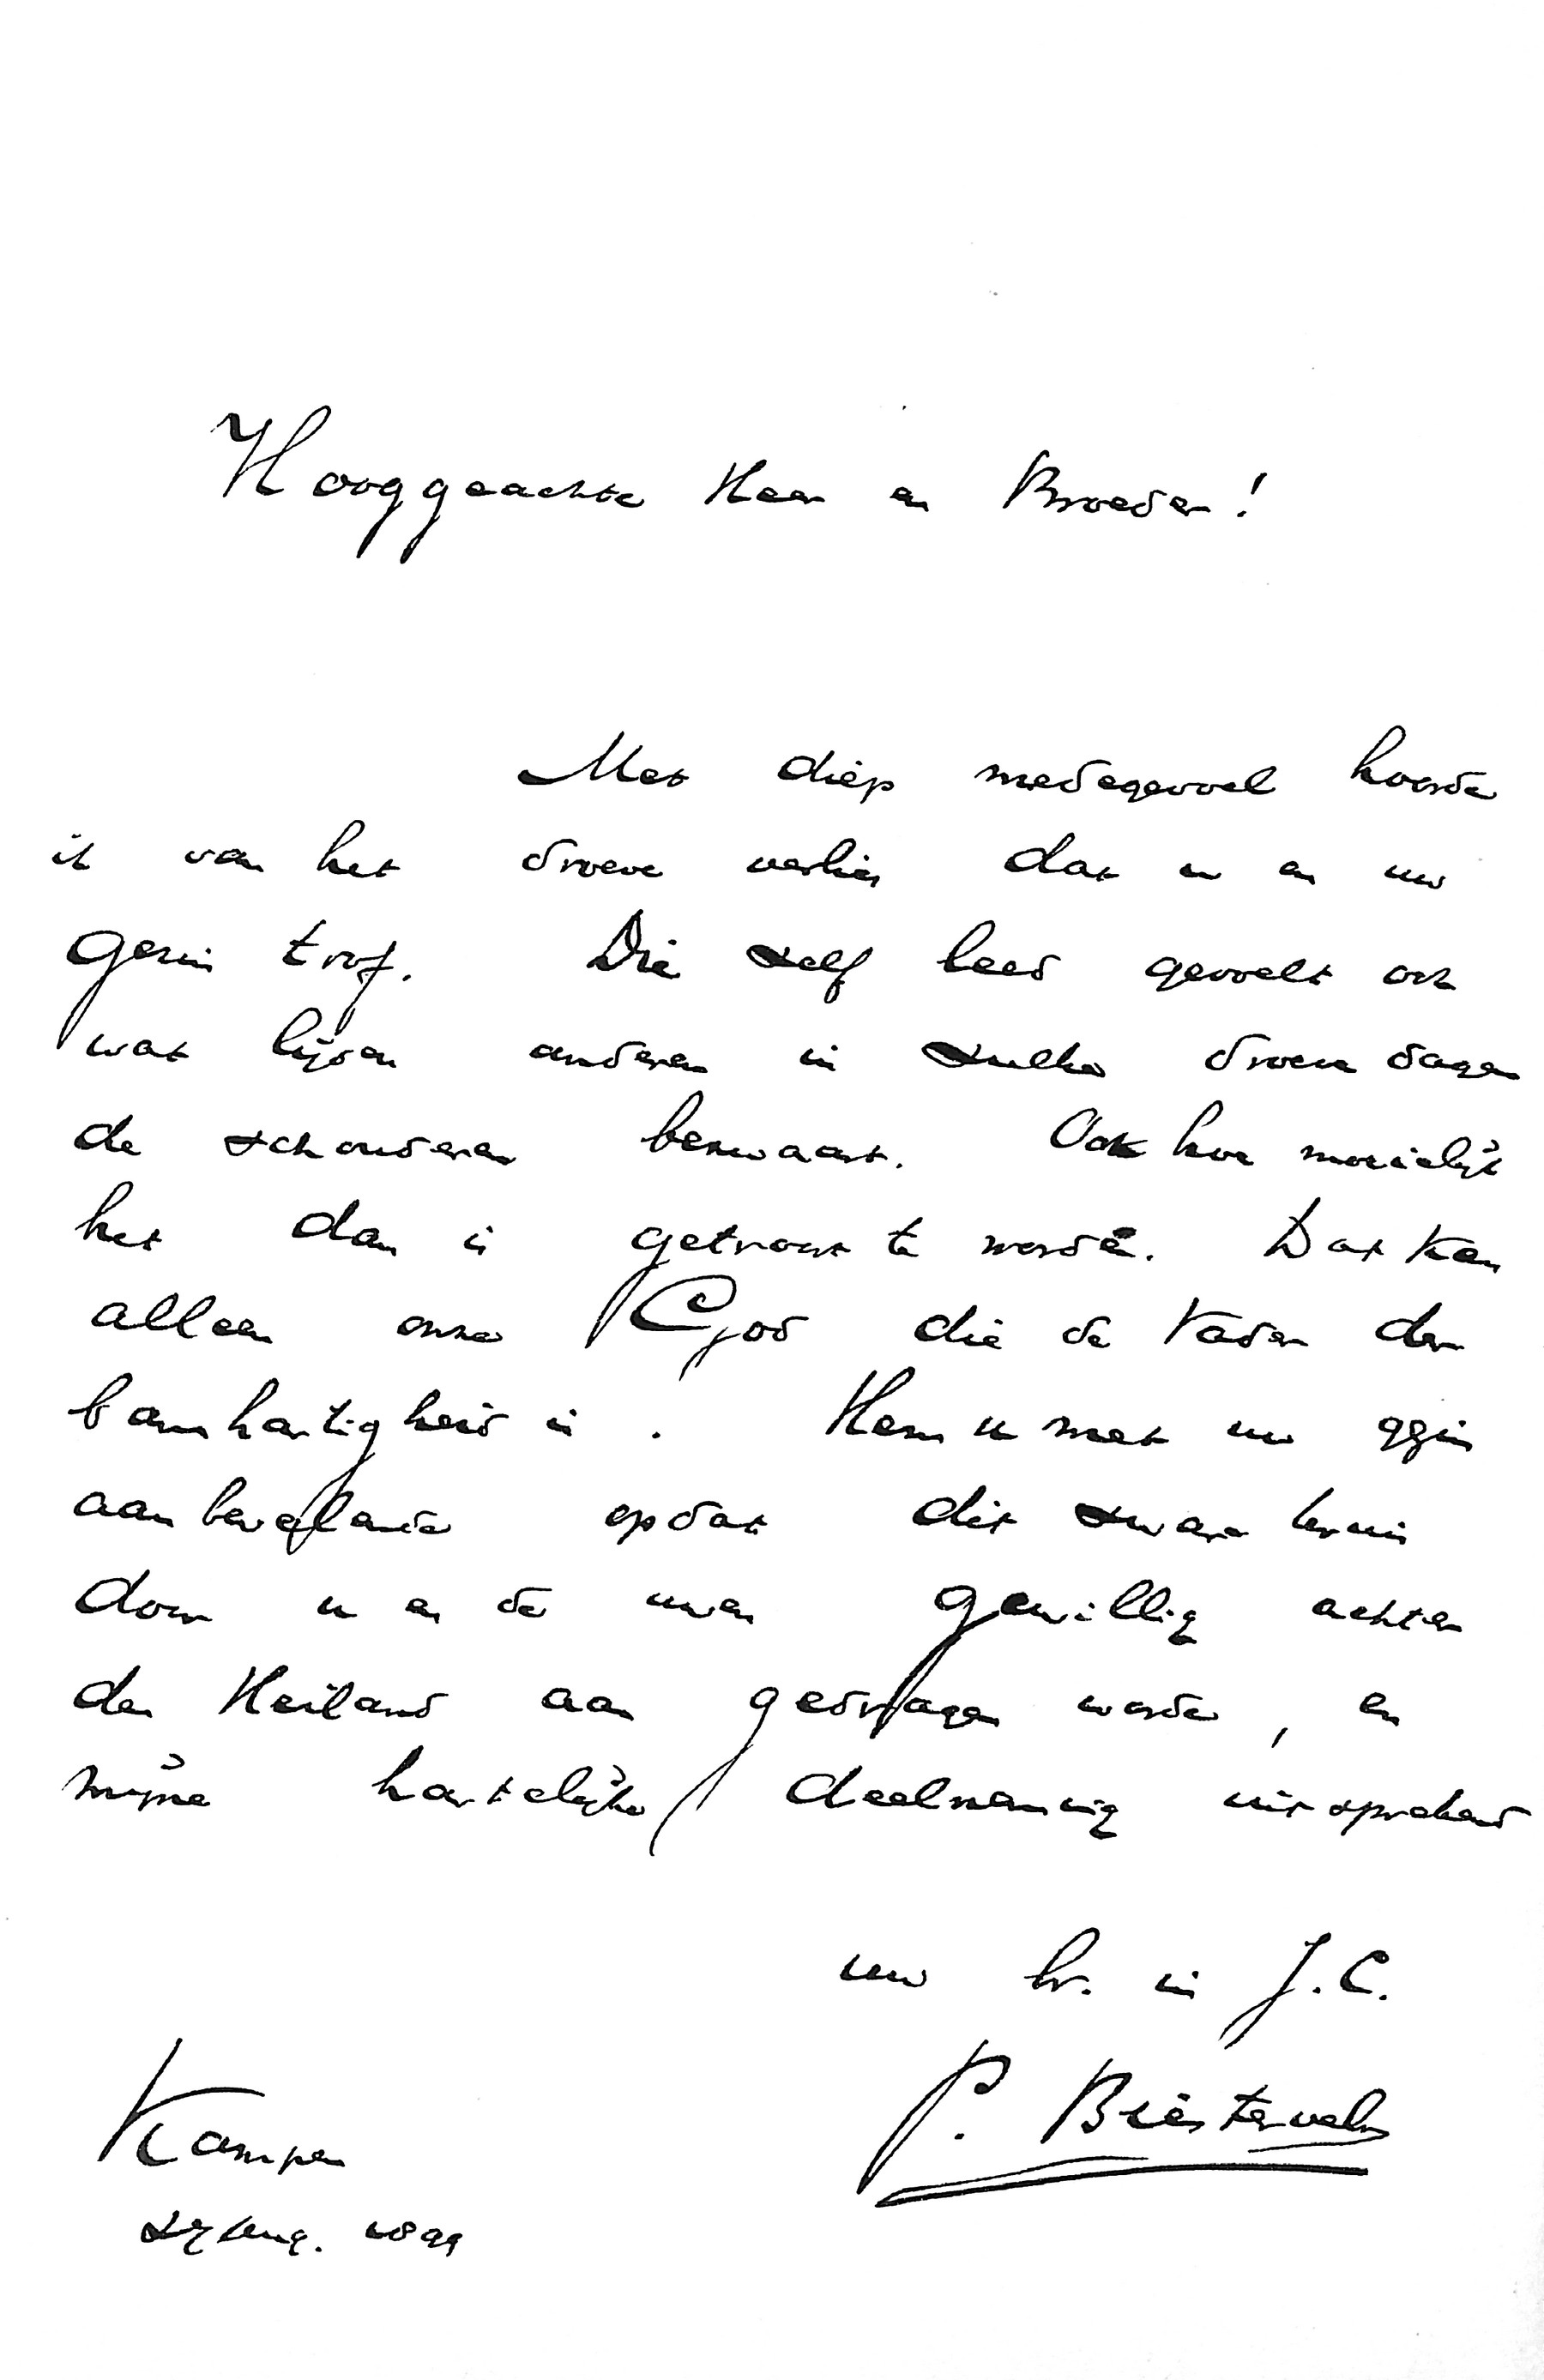 Hooggeachte Heer en Broeder!
Met diep medegevoel hoorde
ik van het droeve verlies dat u en uw
gezin trof. Die zelf leed gevoelt ook
wat lijden anderen in zulke droeve dagen
de schouderen bezwaart. Ook hoe moeielijk
het dan is getroost te worden. Dat kan
alleen onze God die de Vader der
barmhartigheid is. Hem u met uw gezin
aanbevelende opdat dit zware kruis
door u en de uwen gewillig achter
den Heiland aan gedragen worde, en
mijne hartelijke deelneming uitsprekend
uw br. in J.C.
P. Biesterveld
Kampen
Aug. 1899